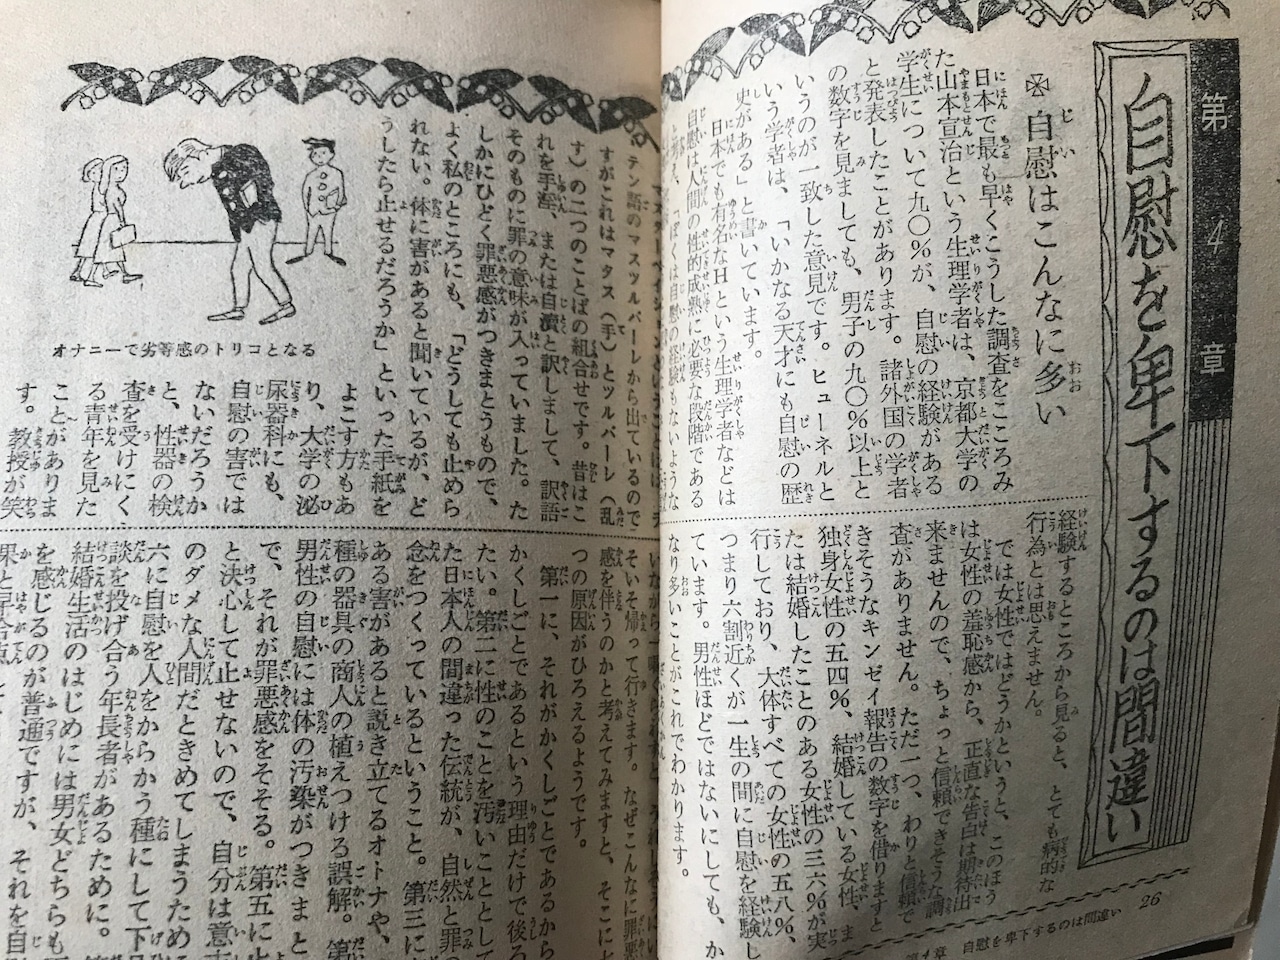 第4章
自慰を卑下するのは間違い
自慰はこんなに多い
日本で最も早くこうした調査をこころみ
た山本宣治という生理学者は、京都大学の
学生について九〇％が、自慰の経験がある
と発表したことがあります。諸外国の学者
の数字を見ましても、男子の九〇％以上と
いうのが一致した意見です。ヒューネルと
いう学者は、「いかなる天才にも自慰の歴
史がある」と書いています。
日本でも有名なHという生理学者などは
自慰は人間の性的成熟に必要な段階である
「ぼくは自慰の経験もないような
経験するところから見ると、とても病的な
行為とは思えません。
では女性ではどうかというと、このほう
は女性の羞恥感から、正直な告白は期待出
来ませんので、ちょっと信頼できそうな調
査がありません。ただ一つ、わりと信頼で
きそうなキンゼイ報告の数字を借りますと
独身女性の五四％、結婚している女性、ま
たは結婚したことのある女性の三六％が実
行しており、大体すべての女性の五八％、
つまり六割近くが一生の間に自慰を経験し
ています。男性ほどではないにしても、か
なり多いことがこれでわかります。
26
第4章 自慰を卑下するのは間違い
テン語のマスツルバーレから出ているので
すがこれはマタス（手）とツルバーレ（乱
す）の二つのことばの組合せです。昔はこ
れを手淫、または自瀆と訳しまして、訳語
そのものに罪の意味が入っていました。た
しかにひどく罪悪感がつきまとうもので、
よく私のところにも、「どうしても止めら
れない。体に害があると聞いているが、ど
うしたら止せるだろうか」といった手紙を
よこす方もあ
り、大学の泌
尿器科にも、
自慰の害では
ないだろうか
と、性器の検
査を受けにく
る青年を見た
ことがありま
す。教授が笑
オナニーで劣等感のトリコとなる
そいそ帰って行きます。なぜこんなに罪悪
感を伴うのかと考えてみますと、そこに
つの原因がひろえるようです。
第一に、それがかくしごとであるから
かくしごとであるという理由だけで後ろ
たい。第二に性のことを汚いこととして
た日本人の間違った伝統が、自然と罪の
念をつくっているということ。第三に
ある害があると説き立てるオトナや、
種の器具の商人の植えつける誤解。第
男性の自慰には体の汚染がつきまと
で、それが罪悪感をそそる。第五に
と決心して止せないので、自分は意
のダメな人間だときめてしまうため
六に自慰を人をからかう種にして下
談を投げ合う年長者があるために。
結婚生活のはじめには男女どちらも
を感じるのが普通ですが、それを自